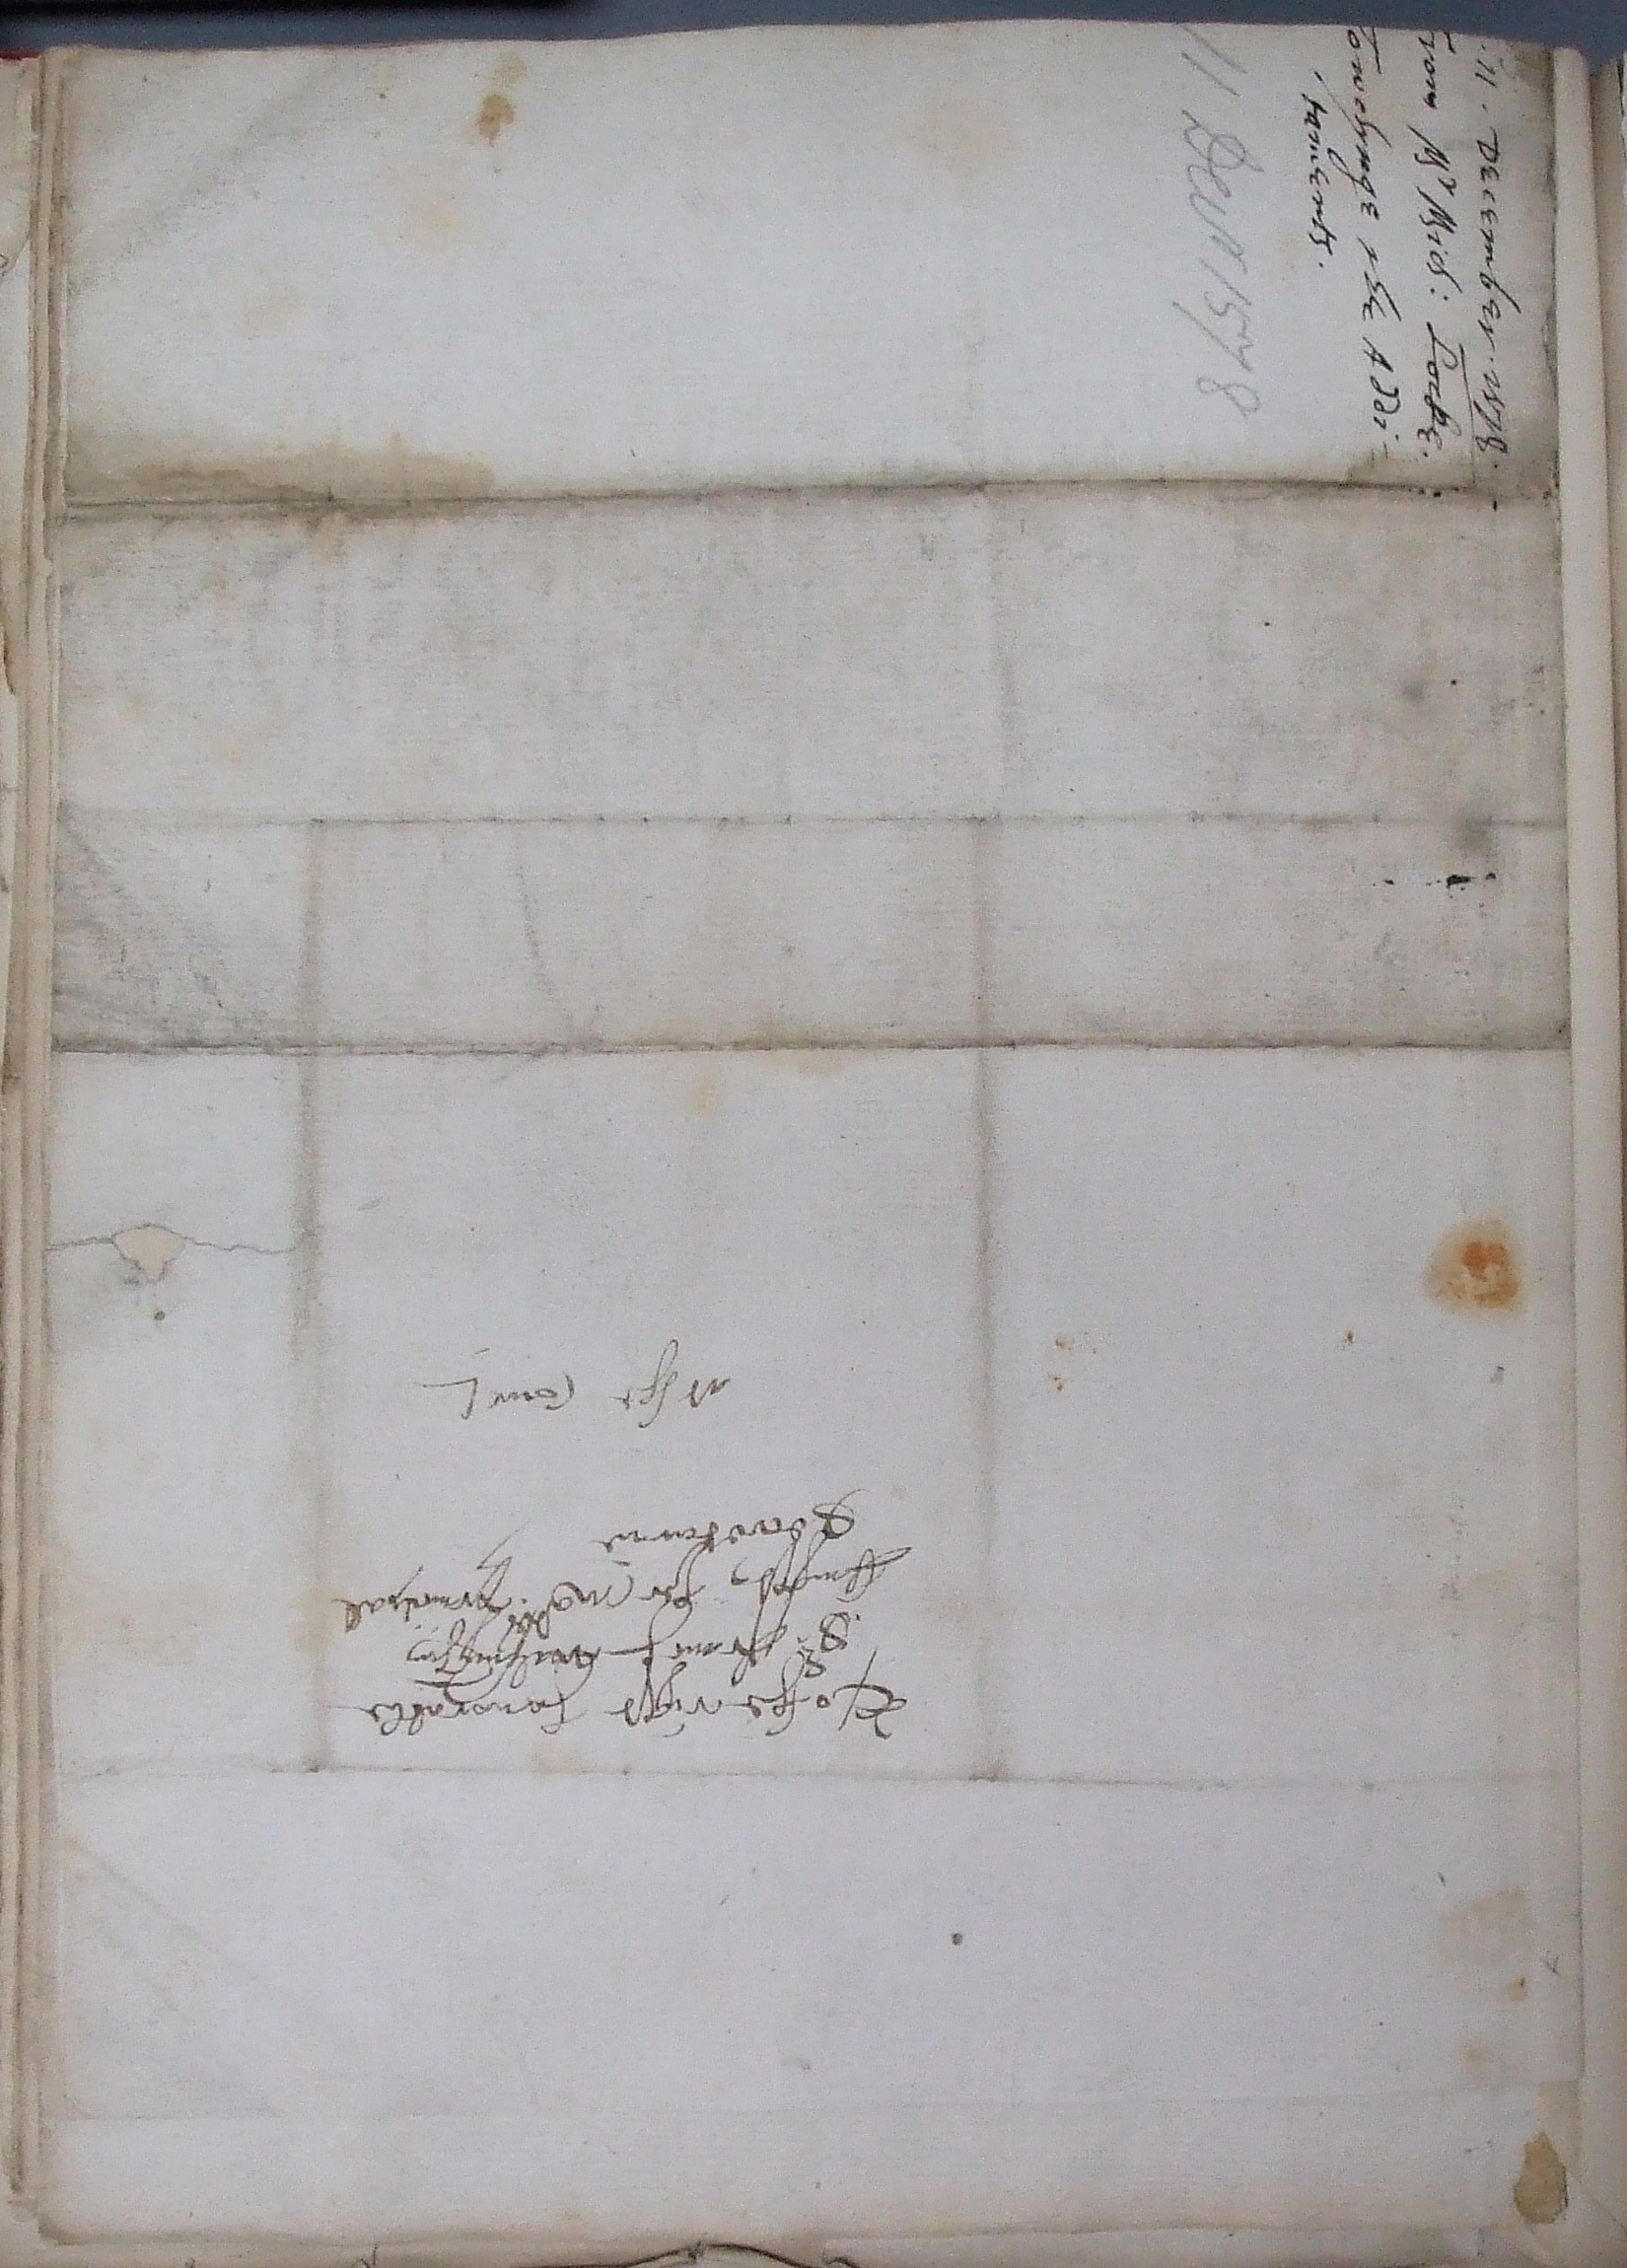 .11. December. 1578.
From Mr Mich: Locke.
Towchynge the Addi=
tamentℯ.
11 Decr 1578
To the right honorable
Sr ffrancis walsingham
knight, her maties principall
Secretarie
at the Court